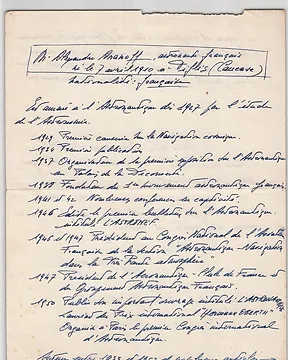 Mr Alexandre Ananoff astronaute français
né le 7 avril 1910 à Tiflis (Caucase)
nationalité: française
Est amené à l'Astronautique dès 1927 par l'étude
de l'Astronomie.
1929 Première causerie sur la Navigation cosmique.
Première publication
1937 Organisation de la première exposition sur l'Astronautique
au Palais de la Découverte.
1938 Fondation du 1er mouvement astronautique français
1941 et 42 Nombreuses conférences en captivité.
1946 Edite le premier bulletin sur l'Astronautique
intitulé "L'ASTRONEF"
1946 et 1947 Présidant au Congrès National de l'Aviation
Française de la section "Astronautique - Navigation
dans la très haute atmosphère"
1947 Président de l'Aéronautique-Club de France et
du Groupement Astronautique Français.
1950 Publie son important ouvrage intitulé: L'ASTRONAUTIQUE
Lauréat du Prix international "HERMANN OBERTH"
Organise à Paris le premier Congrès international
d'Astronautique.
1938 et